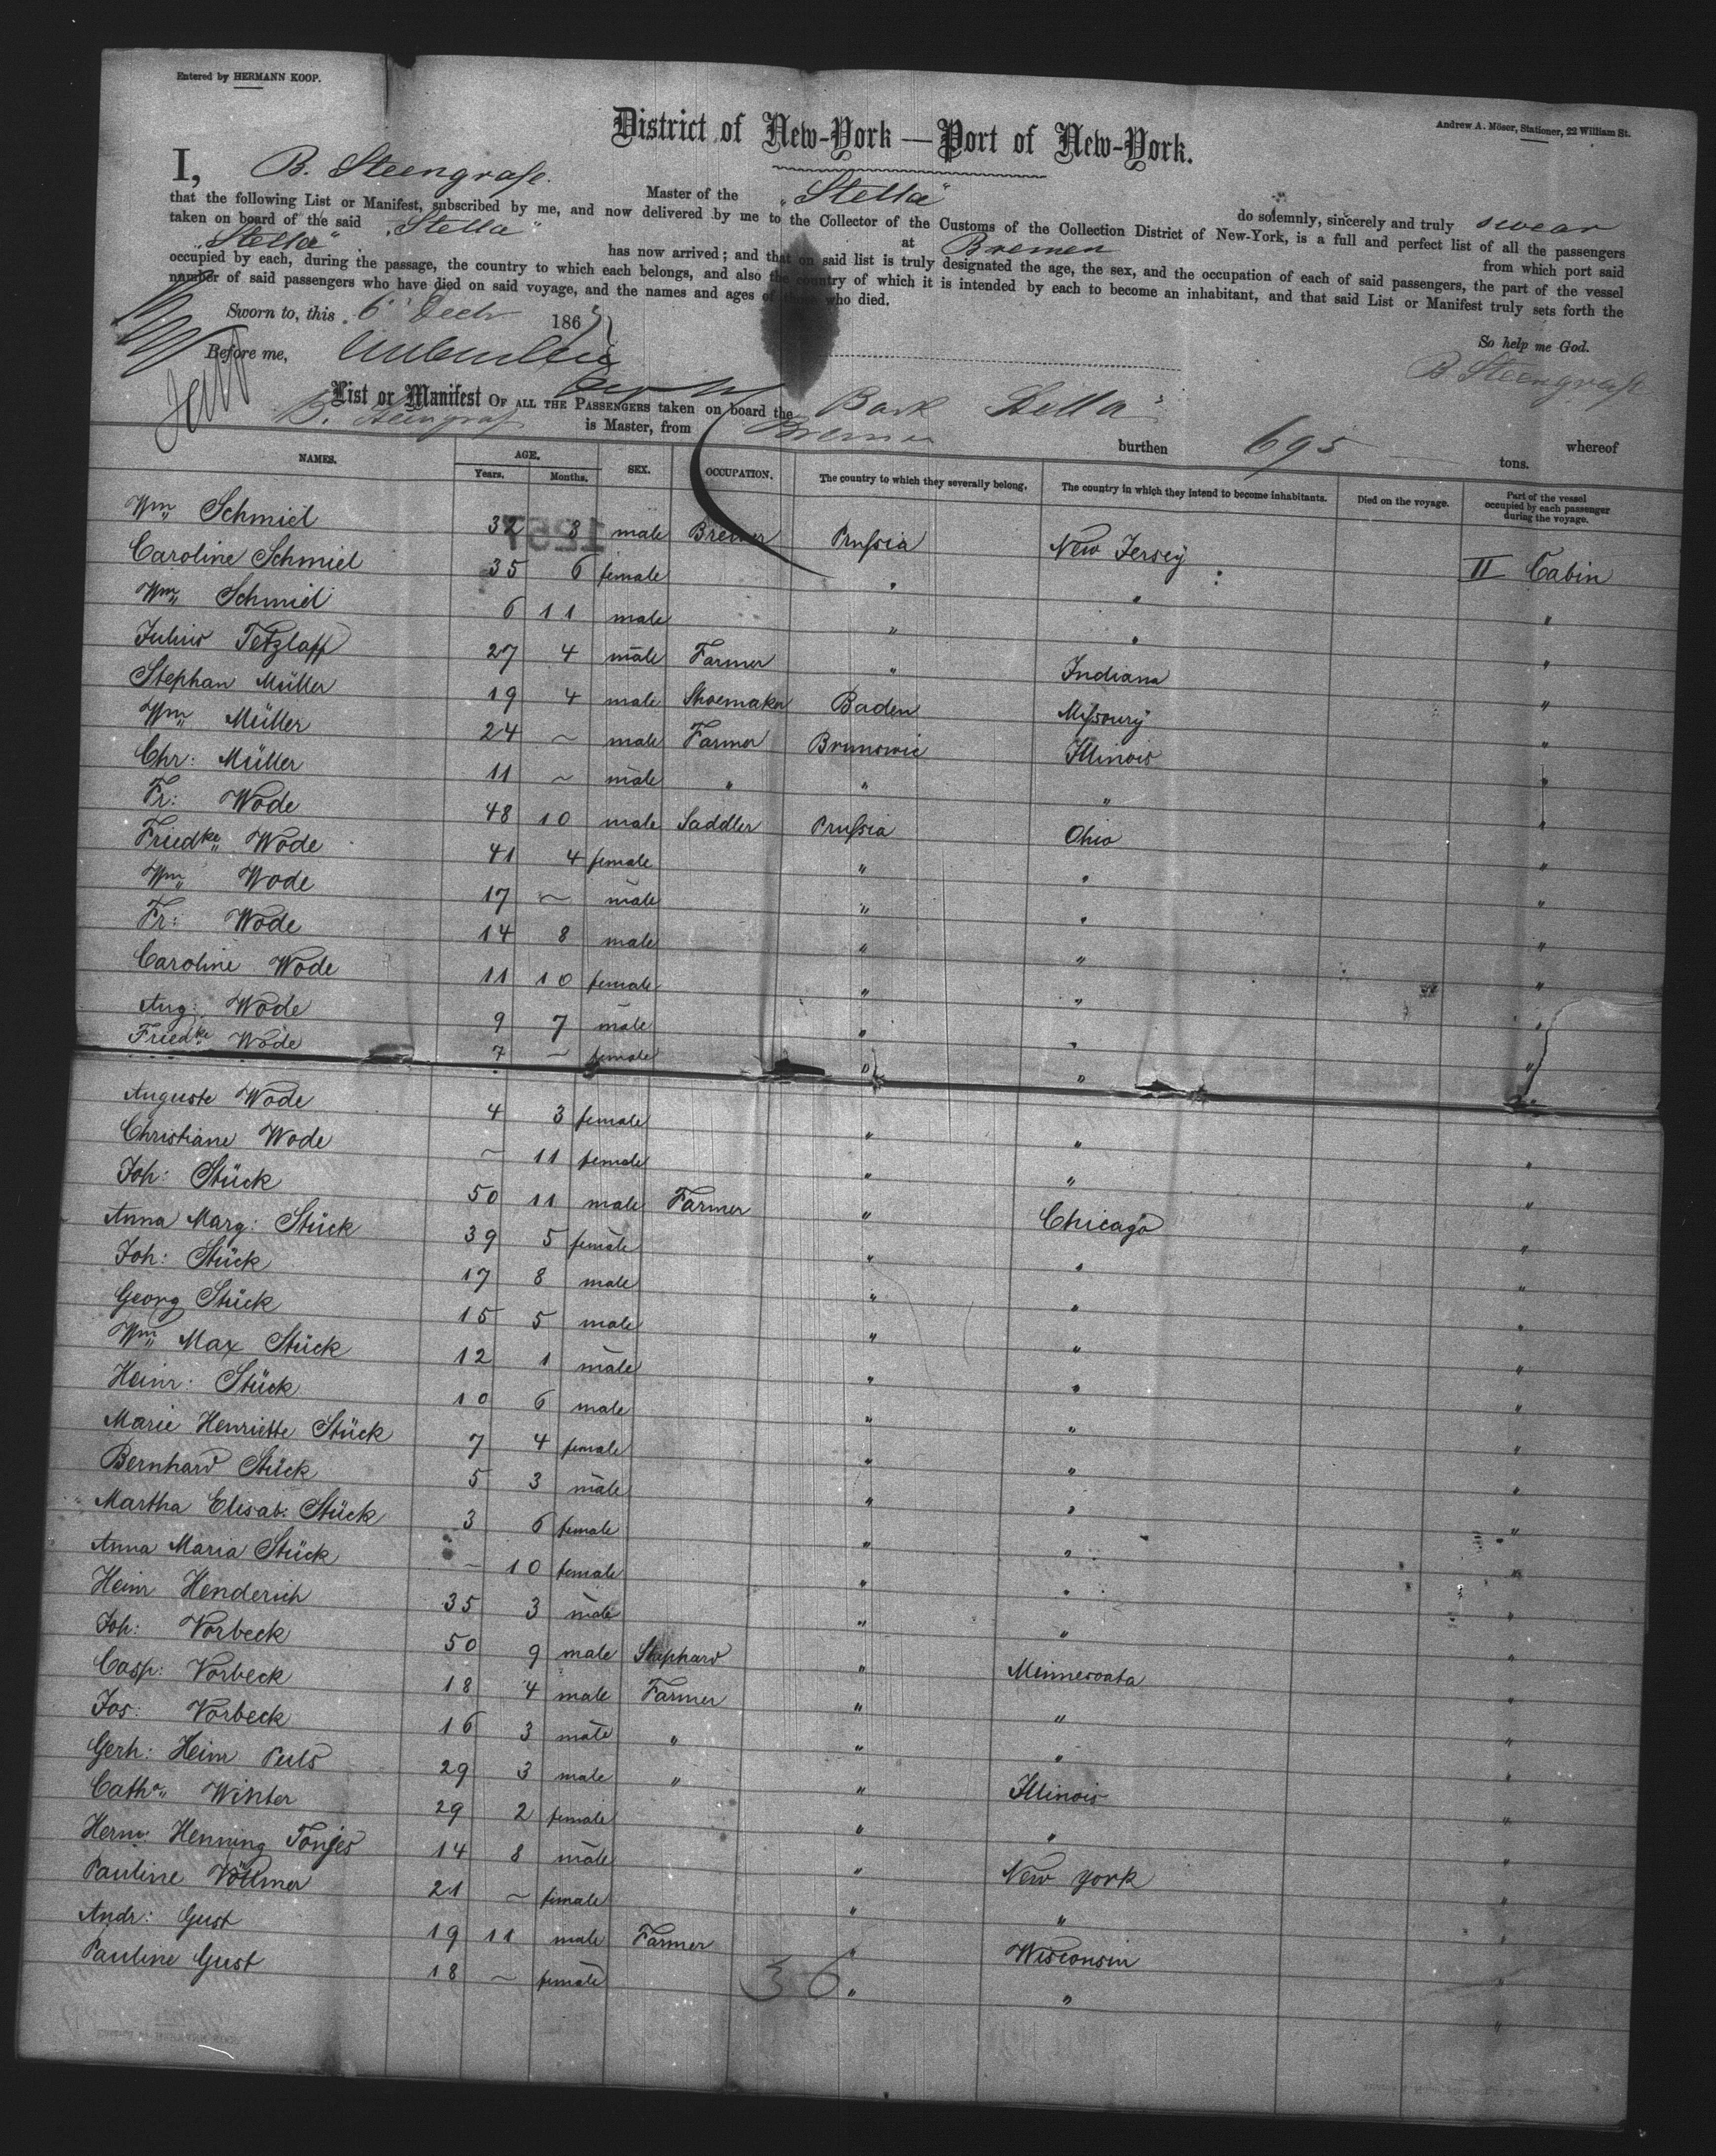 Entered by HERMANN KOOP.
Andrew A. Möser, Stationer, 22 William St.
District of New-York — Port of New-York.
I, B. Steengrafe. Master of the „Stella" do solemnly, sincerely and truly swear
that the following List or Manifest, subscribed by me, and now delivered by me to the Collector of the Customs of the Collection District of New-York, is a full and perfect list of all the passengers
taken on board of the said „Stella" at Bremen from which port said
„Stella" has now arrived; and that on said list is truly designated the age, the sex, and the occupation of each of said passengers, the part of the vessel
occupied by each, during the passage, the country to which each belongs, and also the country of which it is intended by each to become an inhabitant, and that said List or Manifest truly sets forth the
number of said passengers who have died on said voyage, and the names and ages of those who died.
Sworn to, this 6 Decbr 186
So help me God.
Before me,
B Steengrafe
List or Manifest OF ALL THE PASSENGERS taken on board the Bark Stella
B. Steengrafe is Master, from Bremen burthen 695 tons. whereof
NAMES. AGE. Years. Months. SEX. OCCUPATION. The country to which they severally belong. The country in which they intend to become inhabitants. Died on the voyage. Part of the vessel occupied by each passenger during the voyage.
Wm Schmiel 32 8 male Brewer Prussia New Jersey II Cabin
Caroline Schmiel 35 6 female " " "
Wm Schmiel 6 11 male " " "
Julius Tetzlaff 27 4 male Farmer " Indiana "
Stephan Müller 19 4 male Shoemaker Baden Missoury "
Wm Müller 24 ~ male Farmer Brunswic Illinois "
Chr: Müller 11 ~ male " " " "
Fr: Wode 48 10 male Saddler Prussia Ohio "
Friedke Wode 41 4 female " " "
Wm Wode 17 ~ male " " "
Fr: Wode 14 8 male " " "
Caroline Wode 11 10 female " " "
Aug: Wode 9 7 male " " "
Friedke Wode 7 ~ female " " "
Auguste Wode 4 3 female " " "
Christiane Wode ~ 11 female " " "
Joh: Stück 50 11 male Farmer " Chicago "
Anna Marg: Stück 39 5 female " " "
Joh: Stück 17 8 male " " "
Georg Stück 15 5 male " " "
Wm Max Stück 12 1 male " " "
Heinr: Stück 10 6 male " " "
Marie Henriette Stück 7 4 female " " "
Bernhard Stück 5 3 male " " "
Martha Elisab: Stück 3 6 female " " "
Anna Maria Stück ~ 10 female " " "
Heinr Henderich 35 3 male " " "
Joh: Vorbeck 50 9 male Shephard " Minnesoata "
Casp: Vorbeck 18 4 male Farmer " " "
Jos: Vorbeck 16 3 male " " " "
Gerh: Heinr Puls 29 3 male " " Illinois "
Catha Winter 29 2 female " " "
Herm: Henning Tonjes 14 8 male " New York "
Pauline Vollmer 21 ~ female " " "
Andr: Gust 19 11 male Farmer " Wisconsin "
Pauline Gust 18 ~ female " " "
36